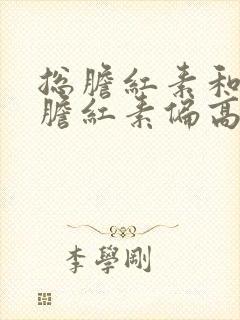 总膽紅素和
膽紅素偏高
李學剛